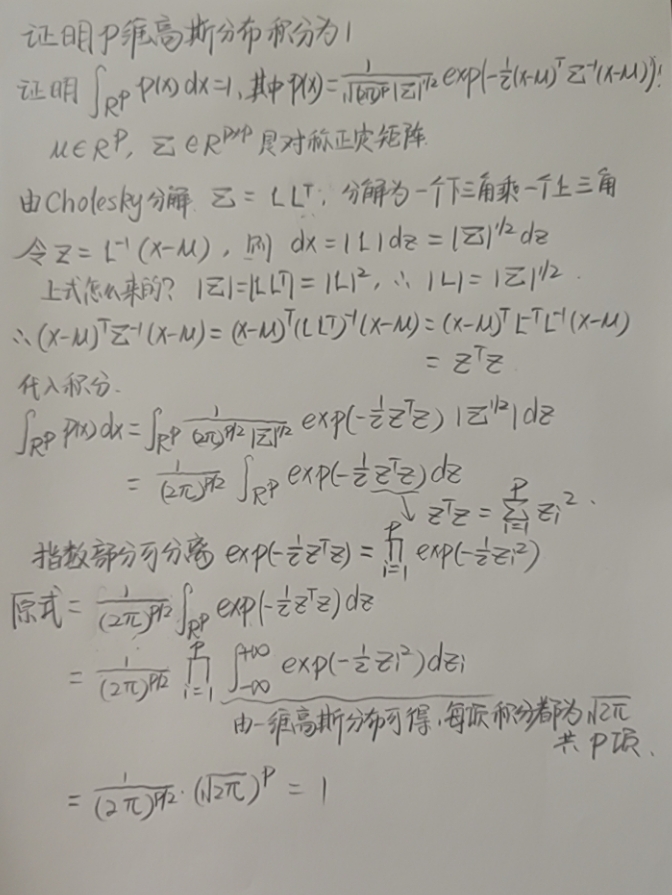 证明p维高斯分布积分为1
证明 ∫_{R^p} p(x) dx=1, 其中 p(x) = 1/(√(2π)^p |Σ|^{1/2}) exp(-1/2(x-μ)^T Σ^{-1}(x-μ))
μ∈R^p, Σ∈R^{p×p} 是对称正定矩阵.
由Cholesky分解 Σ = LL^T, 分解为一个下三角乘一个上三角
令 z = L^{-1}(x-μ), 则 dx = |L|dz = |Σ|^{1/2} dz
上式怎么来的? |Σ|=|LL^T| = |L|^2, ∴ |L| = |Σ|^{1/2}.
∴ (x-μ)^T Σ^{-1}(x-μ) = (x-μ)^T (LL^T)^{-1}(x-μ) = (x-μ)^T L^{-T} L^{-1}(x-μ)
= z^T z
代入积分.
∫_{R^p} p(x)dx = ∫_{R^p} 1/((2π)^{p/2} |Σ|^{1/2}) exp(-1/2 z^T z) |Σ^{1/2}| dz
= 1/(2π)^{p/2} ∫_{R^p} exp(-1/2 z^T z) dz
↓ z^T z = ∑_{i=1}^{p} z_i^2.
指数部分可分离 exp(-1/2 z^T z) = ∏_{i=1}^{p} exp(-1/2 z_i^2)
原式 = 1/(2π)^{p/2} ∫_{R^p} exp(-1/2 z^T z) dz
= 1/(2π)^{p/2} ∏_{i=1}^{p} ∫_{-∞}^{+∞} exp(-1/2 z_i^2) dz_i
由一维高斯分布可得, 每项积分都为√2π
共 p 项.
= 1/(2π)^{p/2} · (√2π)^p = 1